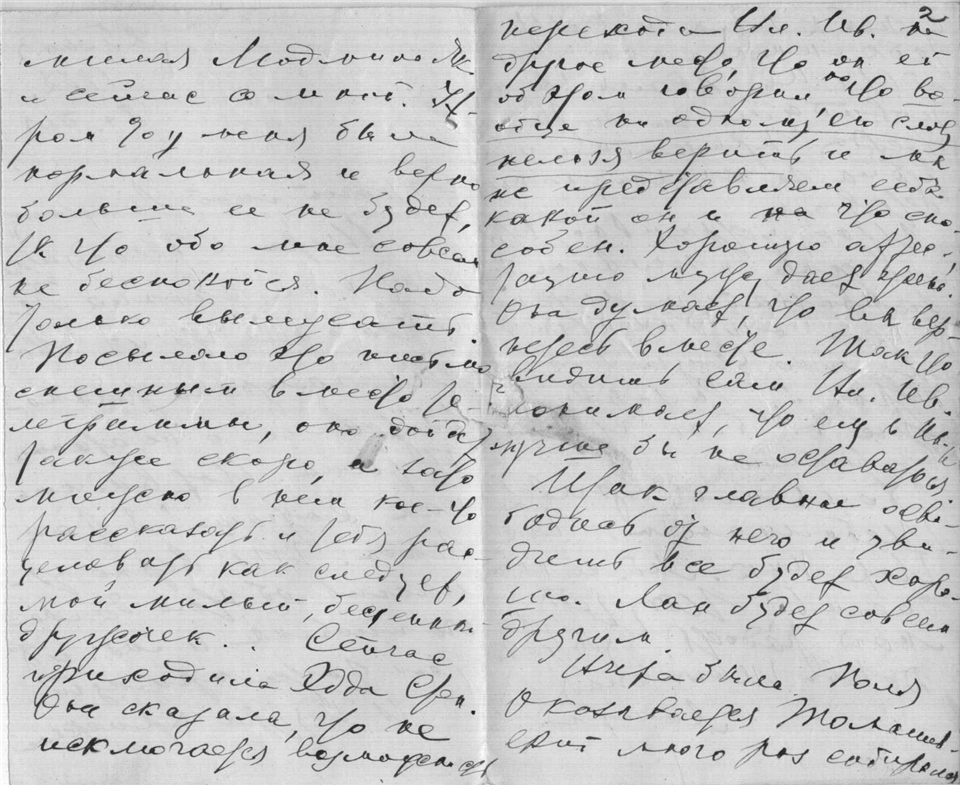 милая Людмилочка
и сейчас со мной. Ут-
ром Т° у меня была
нормальная и верно
больше ее не будет,
так что обо мне совсем
не беспокойся. Надо
только вылежать
Посылаю это письмо
спешным вместо те-
леграммы, оно дойдет
также скоро, а зато
можно в нем кое-что
рассказать и тебя рас-
целовать как следует,
мой милый, бесценный
дружочек... Сейчас
приходила Эдда Фед.
Она сказала, что не
исключается возможность
2
перехода Ил. Ив. на
другое место, что он ей
об этом говорил, но что во-
обще ни одному его слову
нельзя верить и мы
не представляем себе
какой он и на что спо-
собен. Хорошую аттес-
тацию мужу дает жена.
Она думает, что вы вер-
нетесь вместе. Так что
видишь сам Ил. Ив.
понимает, что ему в
лучше бы не оставаться.
Итак главное осво-
бодись от него и уви-
дишь все будет хоро-
шо. Лан будет совсем
другим.
Вчера была Юлия
Оказывается
много раз собирался